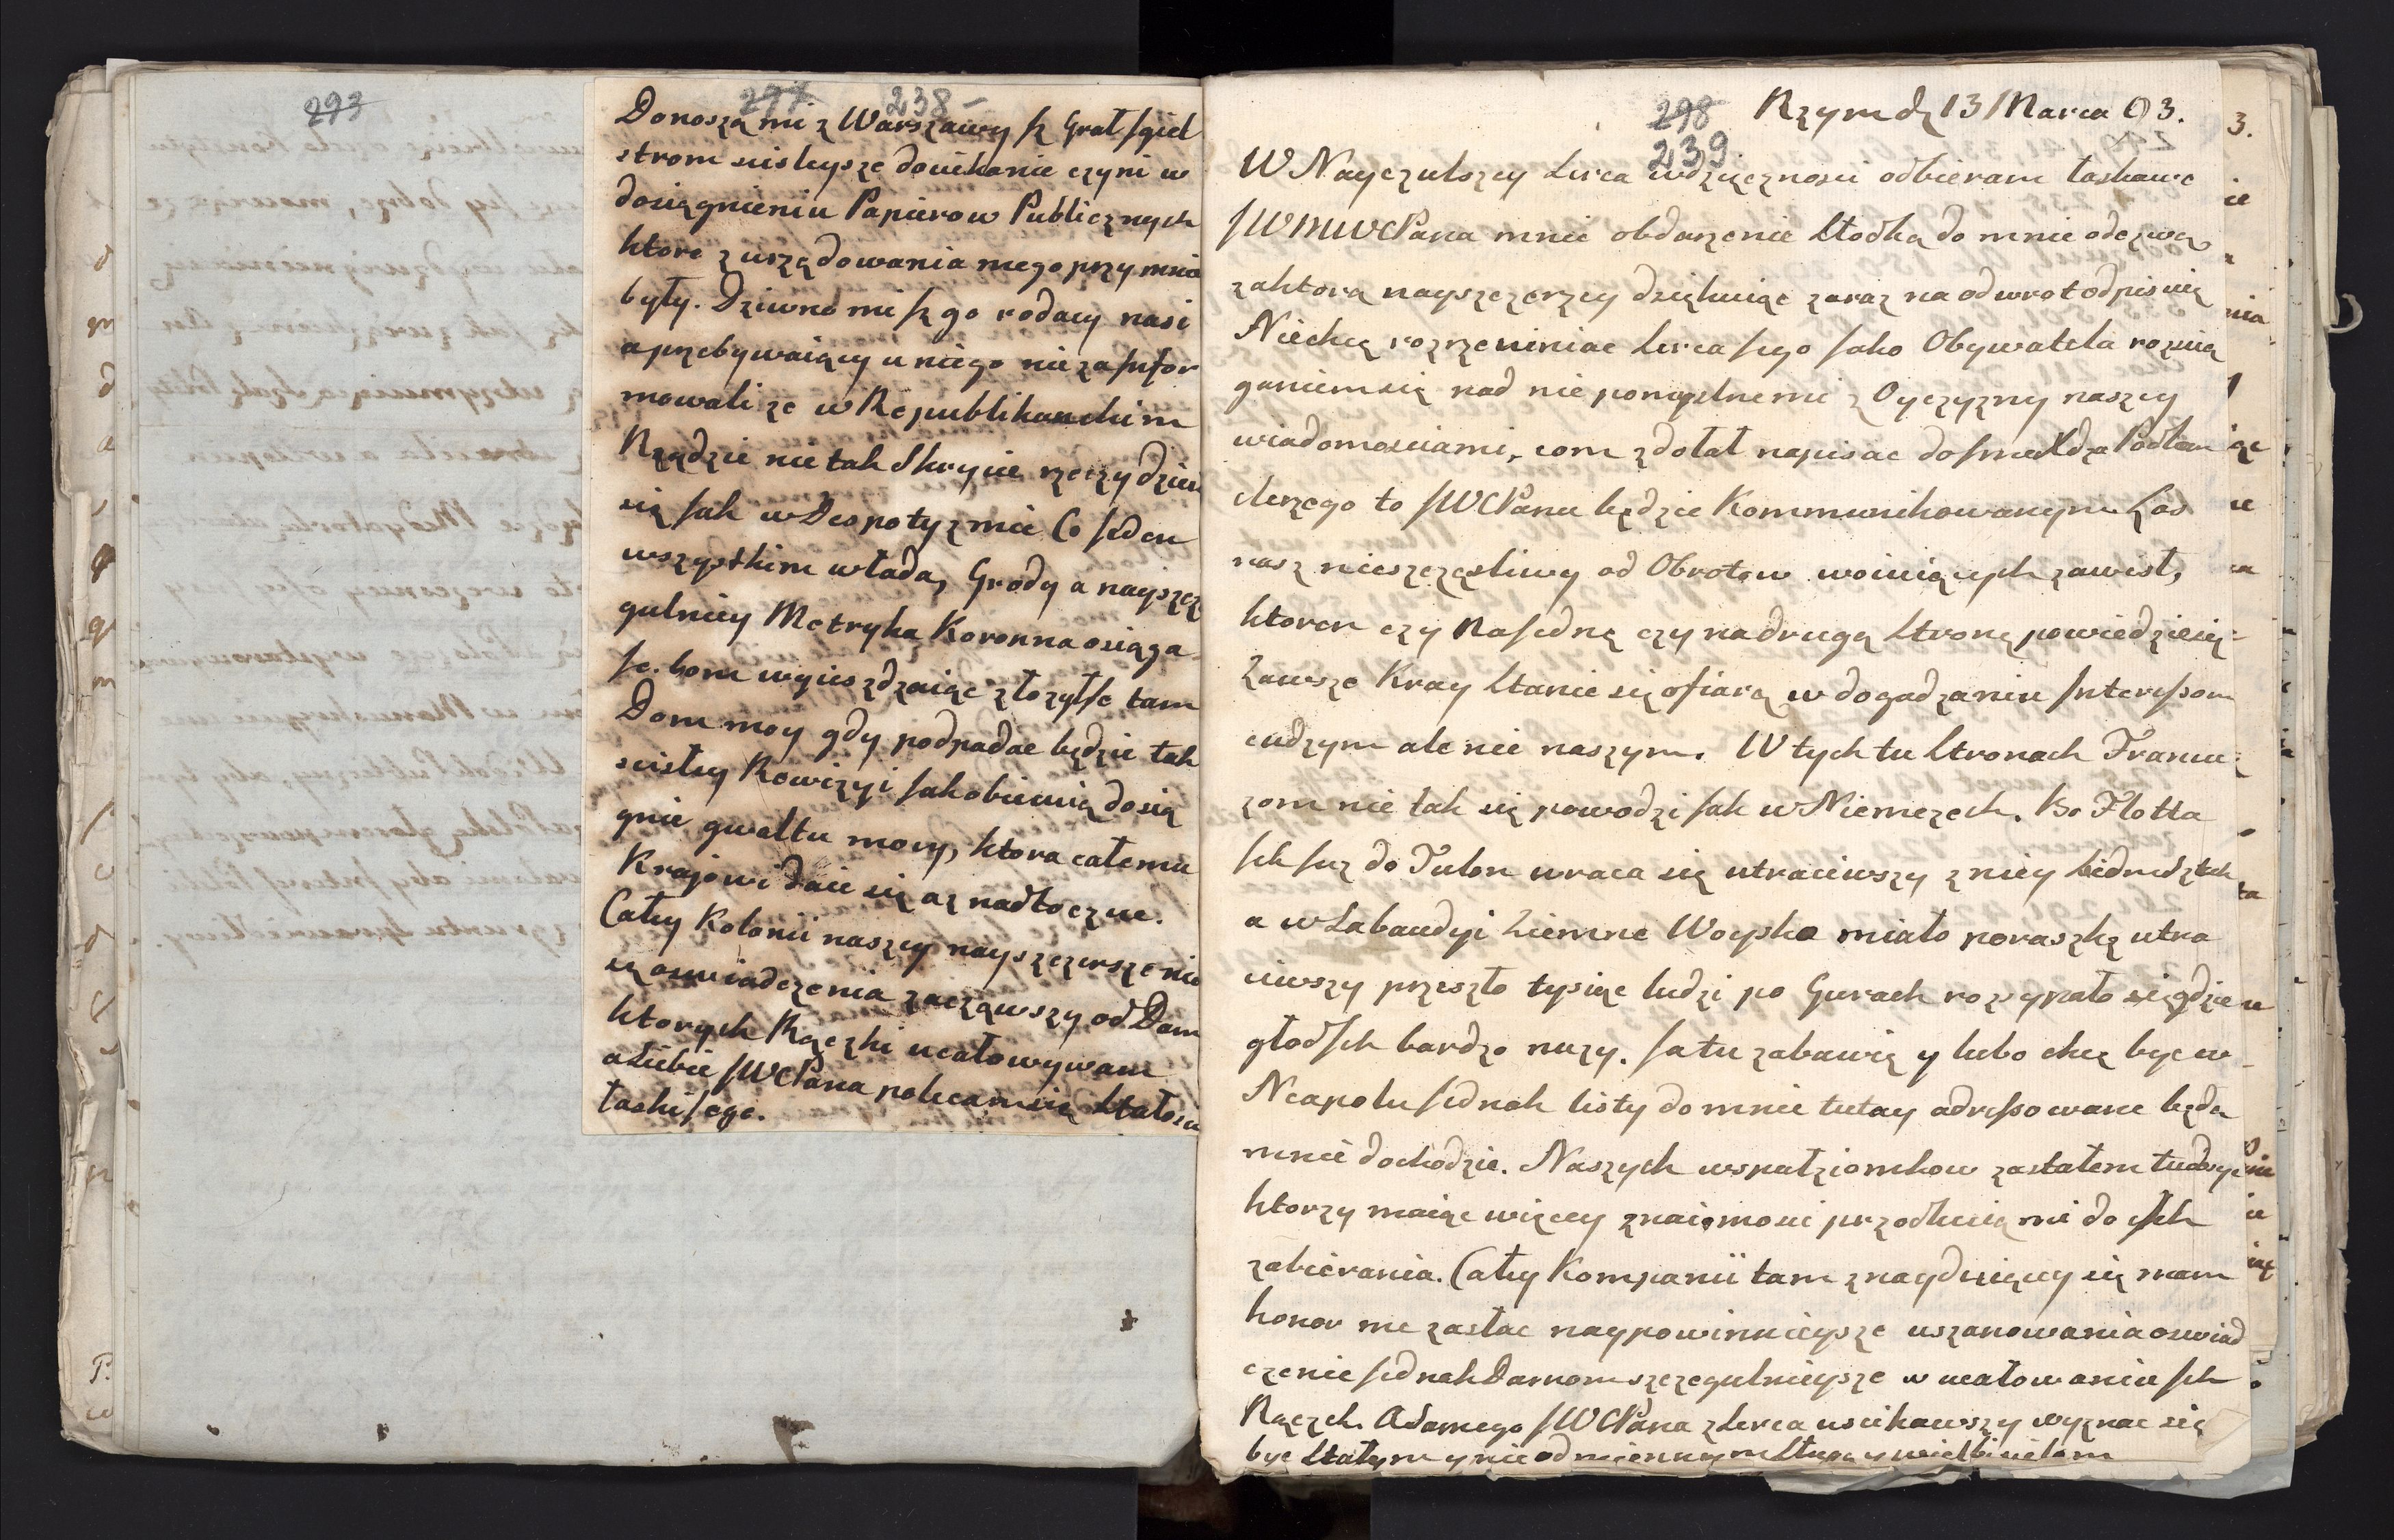 293
297 238 -
Donoszą mi z Warszawy iz Grał Igiel
strom scisleysze docikanie czyni w
dosiągnieniu Papierow Publicznych
ktore z urzędowania mego przy mnie
były. Dziwno mi iz go rodacy nasi
a przebywaiący u niego nie zainfor
mowali ze w Republikanckim
Rządzie nie tak Skrycie rzeczy dzieią
się iak w Despotyzmie Co ieden
wszystkim włada, Grody a nayszcze
gulniey Metryka Koronna osiąga
ie. bom wyieszdzaiąc złozył ie tam
Dom moy gdy podpadac będzie tak
scisłey Rewizyi iako
gnie gwałtu mocy, ktora całemu
Krajowi daie się az nadto czuc.
Całey Kolonii naszey nayszczersze nio
sę oswiadczenia zacząwszy od Dam
ktorych Rączki ucałowywam
a Siebie JWWPana polecam się Stałosci
łaski Jego.
298 Rzym d 13 Marca 93.
239
W Nayczulszey Serca wdzięcznosci odbieram łaskawe
JWMWPana mnie obdarzenie Słodką do mnie odezwą
za ktorą nayszczerzey dziękuiąc zaraz na odwrot odpisuię
Niechcę rozrzewniac Serca Jego Jako Obywatela rozcią
ganiem się nad nie pomyslnemi z Oyczyzny naszey
wiadomosciami, com zdołał napisac do JmeXdza Podkan
clerzego to JWWPanu będzie Kommunikowanym. Los
nasz nieszczęsliwy od Obrotow woiuiących zawisł,
ktoren czy Na iednę czy na drugą Stronę powiedzie się
Zawsze Kray Stanie się ofiarą w dogadzaniu Interessom
cudzym ale nie naszym. W tych tu Stronach Francu
zom nie tak się powodzi iak w Niemczech. Bo Flotta
Ich iuz do Tulon wraca się utraciwszy z niey
a w Sabaudyi Ziemne Woysko miało poraszkę utra
ciwszy przeszło tysiąc ludzi po Gurach rozsypało się gdzie
głod Ich bardzo nuzy. Ja tu zabawię y lubo chcę byc w
Neapolu iednak listy do mnie tutay adressowane będą
mnie dochodzic. Naszych wspułziomkow zastałem tu dosyc
ktorzy maiąc więcey znaiomosci przodkuią mi do Ich
zabierania. Całey Kompanii tam znayduiącey się mam
honor me zasłac naypowinnieysze uszanowania oswiad
czenie iednak Damom szczegulnieysze w ucałowaniu Ich
Rączek. A Samego JWWPana z Serca uscikawszy wyznac się
byc Stałym y nieodmiennym Sługą y wielbicielem